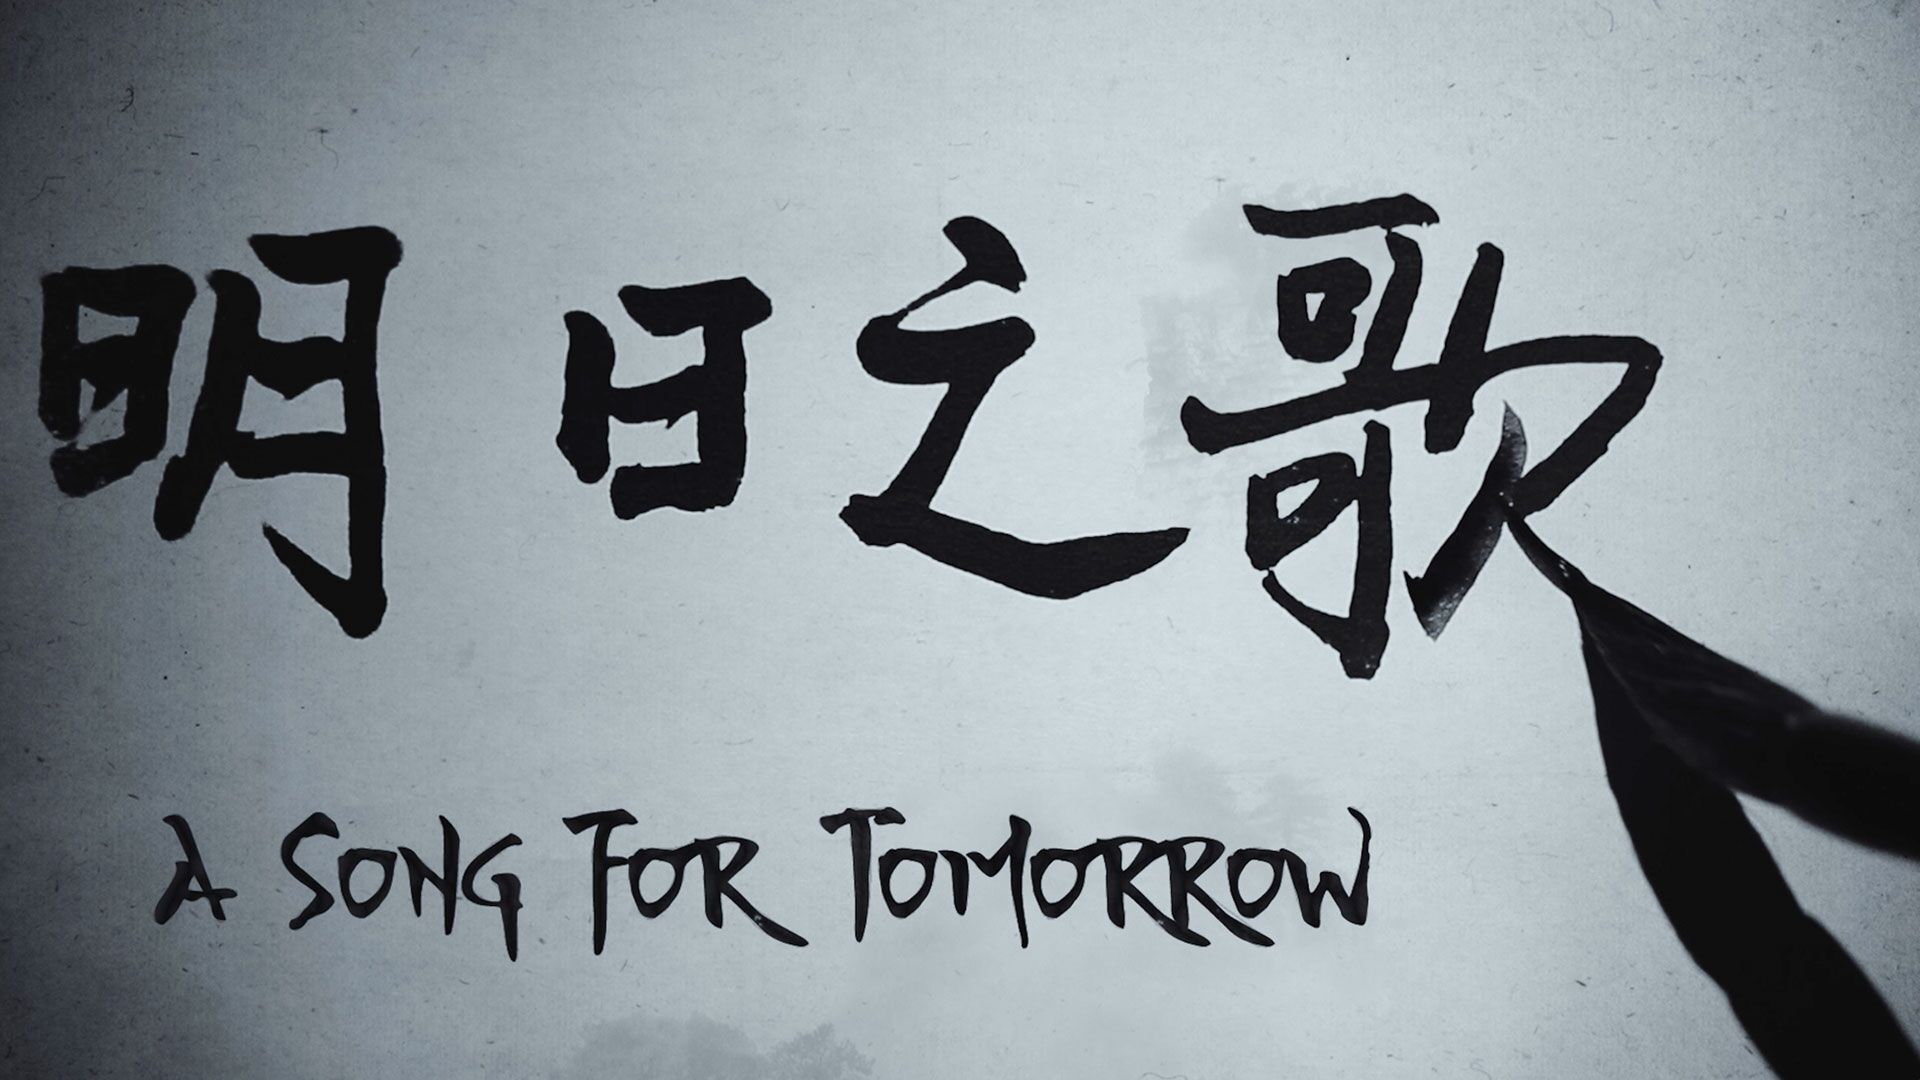 明日之歌
A SONG FOR TOMORROW